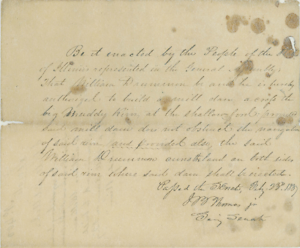 Be it enacted by the People of the
of Illinois represented in the General
That William Drummon be and he is hereby
authorized to build a mill dam across the
big Muddy River at the
said mill dam does not obstruct the navigation
of said river and provided also the said
William Drummon own land on both sides
of said river where said dam shall be erected.
Passed the Senate, Feby 28th
J F Thomas jr
Senate